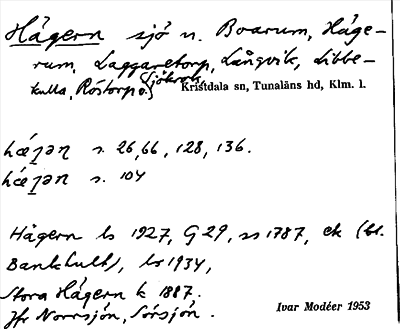 Hågern sjö n. Boarum, Håge-
rum, Laggaretorp, Långvik, Libbe-
kulla, Röstorp o. Sjökrok
Kristdala sn, Tunaläns hd, Klm. l.
s. 26, 66, 128, 136.
s. 104
Hågern ls 1927, G 29, ss 1787, ek (bl.
Bankhult), ls 1934,
Stora Hågern k 1887.
Jfr Norrsjön, Sörsjön.
Ivar Modéer 1953